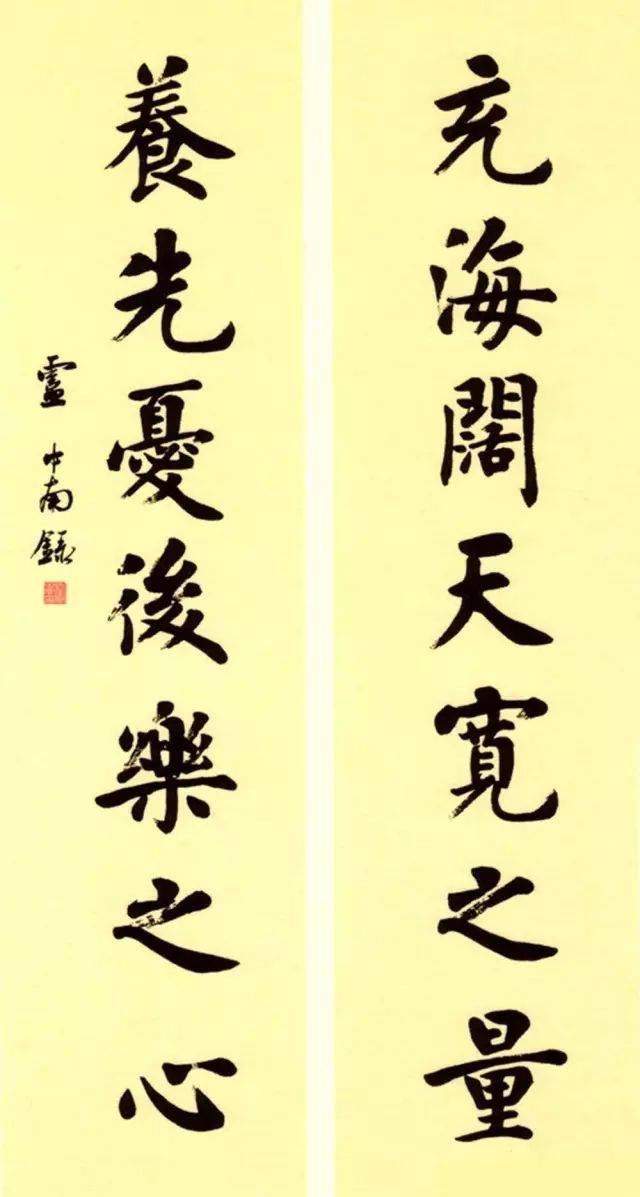 充海闊天寬之量
養先憂後樂之心
盧中南錄